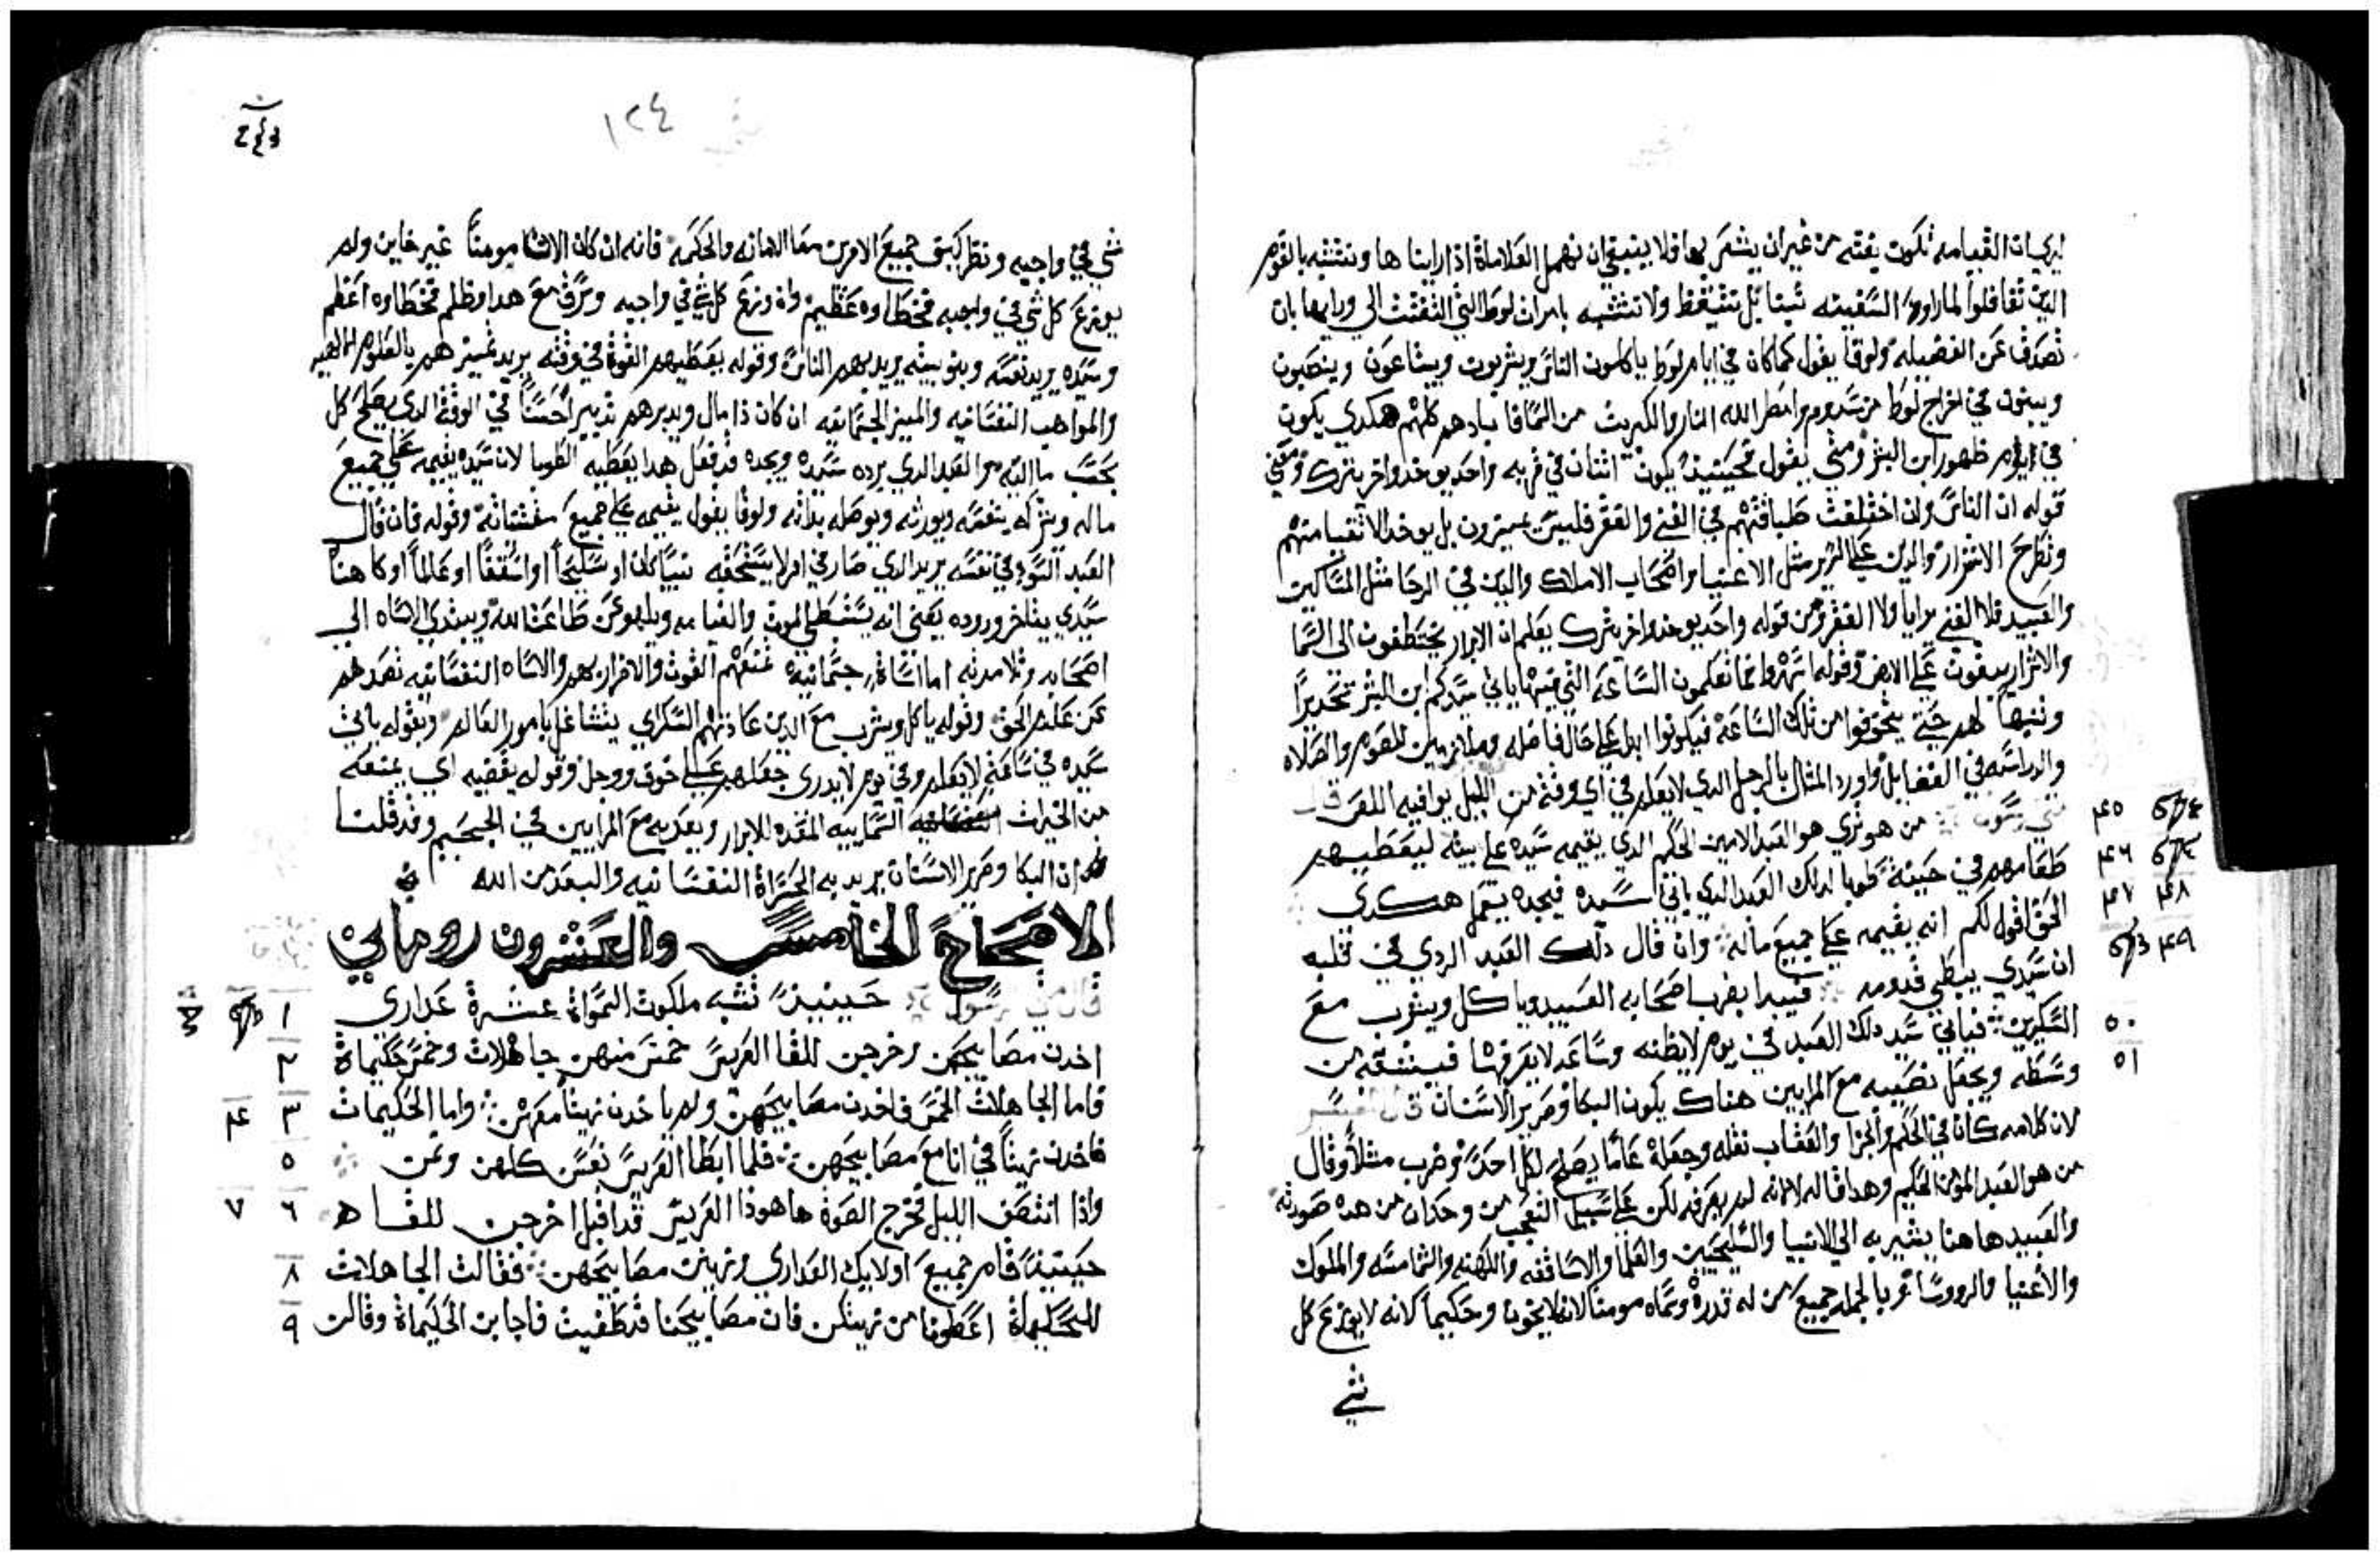 ليريك ان القيامه تكون بغته من غير ان يشعر بها فلا ينبغي ان نهمل العلاماة اذا رايناها ونتشبه بالقوم
الدين تغافلوا لما راوا السفينه تبنا بل نتيقظ ولا نتشبه بامراة لوط التي التفتت الي ورايها بان
نصدف عن الفضيله ولوقا يقول كما كان في ايام لوط ياكلون الناس ويشربون ويبتاعون وينصبون
ويبنون في اخراج لوط من سدوم وامطر الله النار والكبريت من السما فابادهم كلهم هكدي يكون
في ايام ظهور ابن البشر ومتي يقول فحينيد يكون اثنان في قريه واحد يوخد واخر يترك ومعني
قوله ان الناس وان اختلفت طباقتهم في الغني والفقر فليس يميزون بل يوخد الاتقيا منهم
وتطرح الاشرار والدين علي السرير مثل الاغنيا واصحاب الاملاك والدين في الرحا مثل المساكين
والعبيد فلا الغني برايا ولا الفقر ومن قوله واحد يوخد واخر يترك يعلم ان الابرار يختطفون الي السما
والاشرار يبقون علي الارض وقوله اسهروا فما تعلمون الساعه التي فيها ياتي سيدكم ابن البشر تحديرا
وتنبيها لهم حتي يتخوفوا من تلك الساعه فيكونوا ابدا علي حال فاضله وملازمين للصوم والصلاه
والدراسه في الفضايل واورد المثال بالرجل الدي لا يعلم في اي وقت من الليل يوافيه اللص قال
متي رسول من هو تري هو العبد الامين الحكيم الدي يقيمه سيده علي بيته ليعطيهم ٤٥
طعامهم في حينه طوبا لدلك العبد الدي ياتي سيده فيجده يعمل هكدي ٤٦
الحق اقول لكم انه يقيمه علي جميع ماله وان قال دلك العبد الردي في قلبه ٤٧ ٤٨
ان سيدي يبطي قدومه فيبدا يضرب اصحابه العبيد وياكل ويشرب مع ٤٩
السكيرين فياتي سيد دلك العبد في يوم لا يظنه وساعه لا يعرفها فيشقه من ٥٠
وسطه ويجعل نصيبه مع المرايين هناك يكون البكا وصرير الاسنان قال المفسر ٥١
لان كلامه كان في الحكم والجزا والعقاب نقله وجعله عاما يصلح لكل احد وضرب مثلا وقال
من هو العبد المومن الحكيم وهدا قاله لا لانه لم يعرفه لكن علي سبيل التعجب من وحدان من هده صورته
والعبيد هاهنا يشير به الي الانبيا والسليحيين والعلما والاساقفه والكهنه والشمامسه والملوك
والاغنيا والرووسا وبالجمله جميع من له قدرة وسماه مومنا لانه لا يخون وحكيما لانه لا يوزع كل
شي
١٢٤
شي في واجبه ونظر كيف جميع الامرين معا الامانه والحكمه فانه ان كان الانسا مومنا غير خاين ولم
يوزع كل شي في واجبه فخطاوه عظيم وان وزع كل شي في واجبه وسرق مع هدا وظلم فخطاوه اعظم
وسيده يريد نفسه وبنو بيته يريد بهم الناس وقوله يعطيهم القوة في وقته يريد تمييزهم بالعلوم الالهيه
والمواهب النفسانيه والميز الجسمانيه ان كان دا مال ويدبرهم تدبيرا حسنا في الوقت الدي يصلح كل
بحسب ماليته والعبد الدي يرده سيده ويجده قد فعل هدا يعطيه الطوبا لان سيده يقيمه علي جميع
ماله ويتركه ينعمه ويورثه ويوصله بداته ولوقا يقول يقيمه علي جميع مقتناته وقوله فان قال
العبد السو في نفسه يريد الدي صار في امر لا يستحقه نبيا كان او سليحا او اسقفا او عالما او كاهنا
سيدي يتاخر وروده يعني انه يستبطي الموت والقيامه ويلهو عن طاعة الله ويبتدي الاساه الي
اصحابه وتلامدته اما اساة جسمانيه بمنعهم القوت والاضرار بهم والاساه النفسانيه بصدهم
عن علم الحق وقوله ياكل ويشرب مع الدين عادتهم السكراي يتشاغل بامور العالم وبقوله ياتي
سيده في ساعة لا يعلم وفي يوم لا يدري جعلهم علي خوف ووجل وقوله يقصيه اي يمنعه
من الخيرات السماييه المعده للابرار ويعدبه مع المرايين في الجحيم وقد قلنا
ان البكا وصرير الاسنان يريد به الحسراة النفسانيه والبعد من الله
الاصحاح الخامس والعشرون روماني
قال متي رسول حينيد تشبه ملكوت السمواة عشرة عداري ١
اخدن مصابيحهن وخرجن للقا العريس خمس منهن جاهلات وخمس حكيماة ٢
فاما الجاهلات الخمس فاخدن مصابيحهن ولم ياخدن زيتا معهن واما الحكيمات ٣ ٤
فاخدن زيتا في انا مع مصابيحهن فلما ابطا العريس نعسن كلهن ونمن ٥
واذا انتصف الليل فخرج الصوة هاهوذا العريس قد اقبل اخرجن للقاه ٦ ٧
حينيد قام جميع اولايك العداري وزين مصابيحهن فقالت الجاهلات ٨
للحكيماة اعطونا من زيتكن فان مصابيحنا قد طفيت فاجابن الحكيماة وقالت ٩